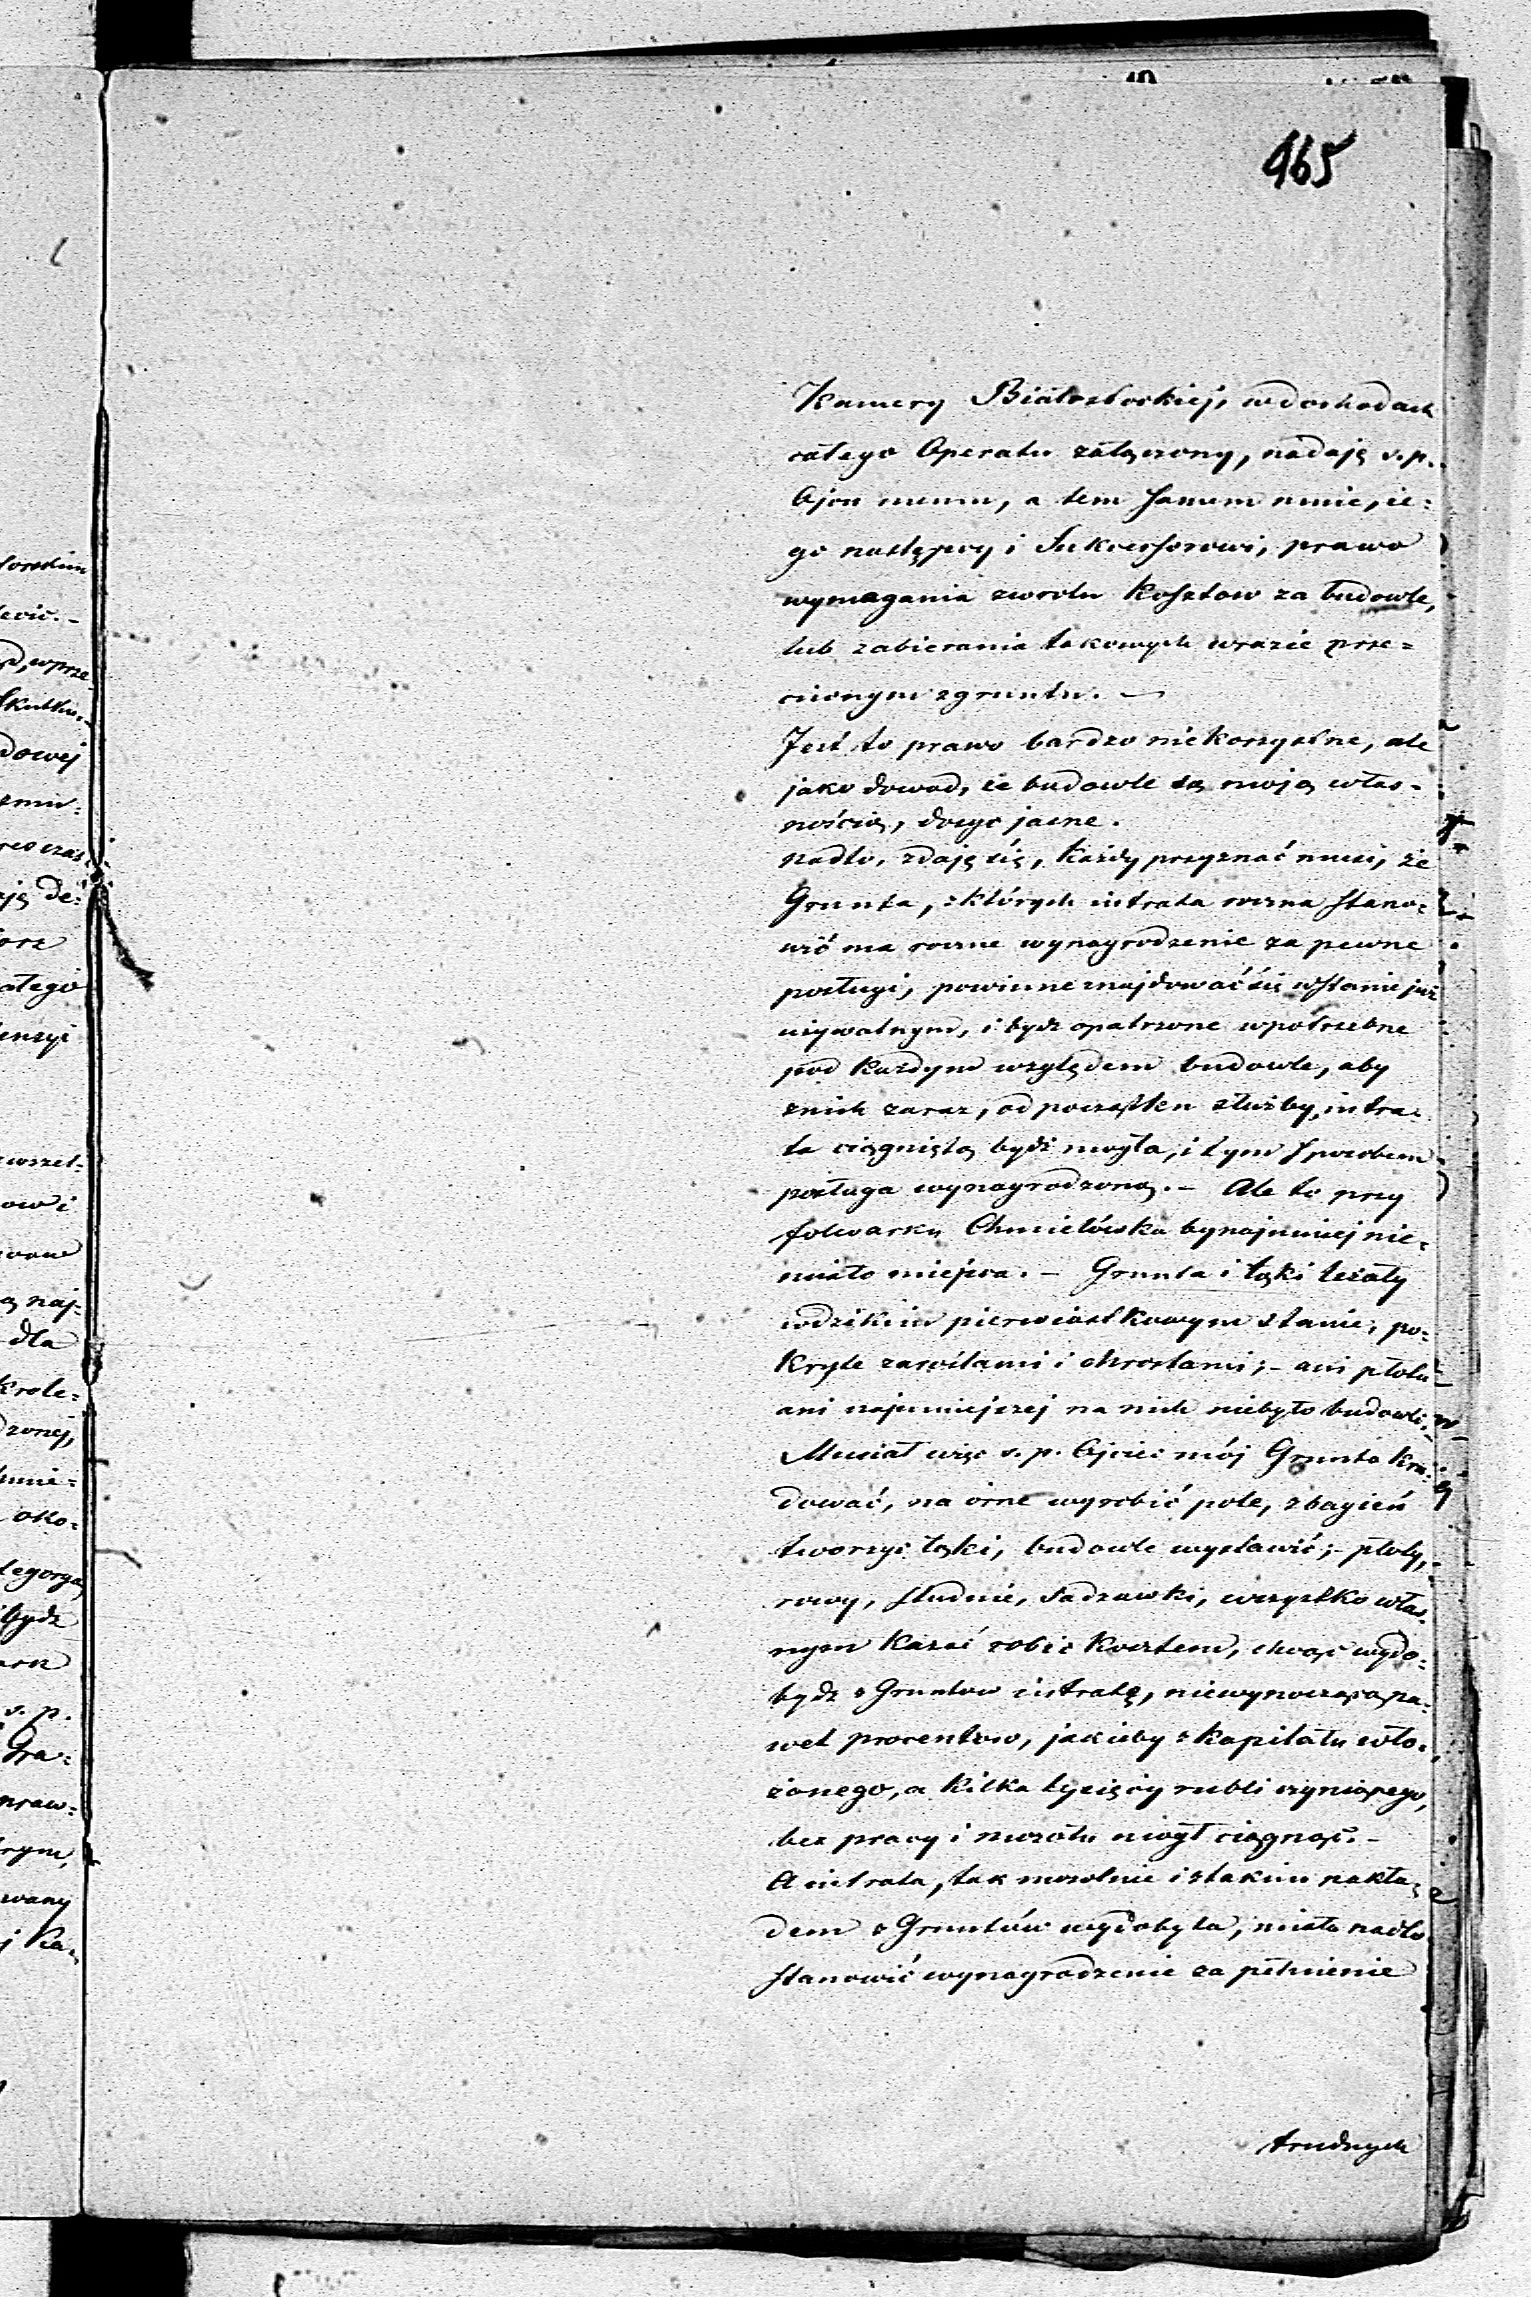 465
Kamery Białostockiej, w dochodach
całego Operatu załączony, nadają ś. p.
Ojcu memu, a tem samem mnie, ie=
go następcy i Sukcessorowi, prawo
wymagania zwrotu kosztow za budowle,
lub zabierania takowych wrazie prze=
ciwnym z gruntu. —
Jest to prawo bardzo niekorzystne, ale
jako dowod, że budowle są moją włas-
nością, dosyc jasne.
nadto, zdaję się, każdy przyznać musi, że
Grunta, z których intrata roczna stano=
wić ma roczne wynagrodzenie za pewne
posługi, powinne znajdować się w stanie już
używalnym, i bydz opatrzone w potrzebne
pod każdym względem budowle, aby
z nich zaraz, od początku służby, intra=
ta ciągniętą bydź mogła, i tym sposobem
posługa wynagrodzoną. — Ale to przy
folwarku Chmielówka bynajmniej nie=
miało miejsca. — Grunta i łąki leżały
w dzikim pierwiastkowym stanie, po=
kryte zaroślami i chrostami; — ani płotu
ani najmniejszej na nich niebyło budowli. —
Musiał więc ś. p. Ojciec mój Grunta kru=
dować, na orne wyrobić pole, z bagień
tworzyc łąki, budowle wystawić; — płoty,
rowy, studnie, Sadzawki, wszystko włas=
nym kazać robić kosztem, chcąc wydo=
bydz z Gruntow intratę, niewynoszącą na=
wet procentow, jakieby z kapitału wło=
żonego, a kilka tysięcy rubli czyniącego,
bez pracy i mozołu mógł ciągnąć. —
A intrata, tak mozolnie i z takim nakła=
dem z Gruntów wydobyta, miała nadto
stanowić wynagrodzenie za pełnienie
trudnych